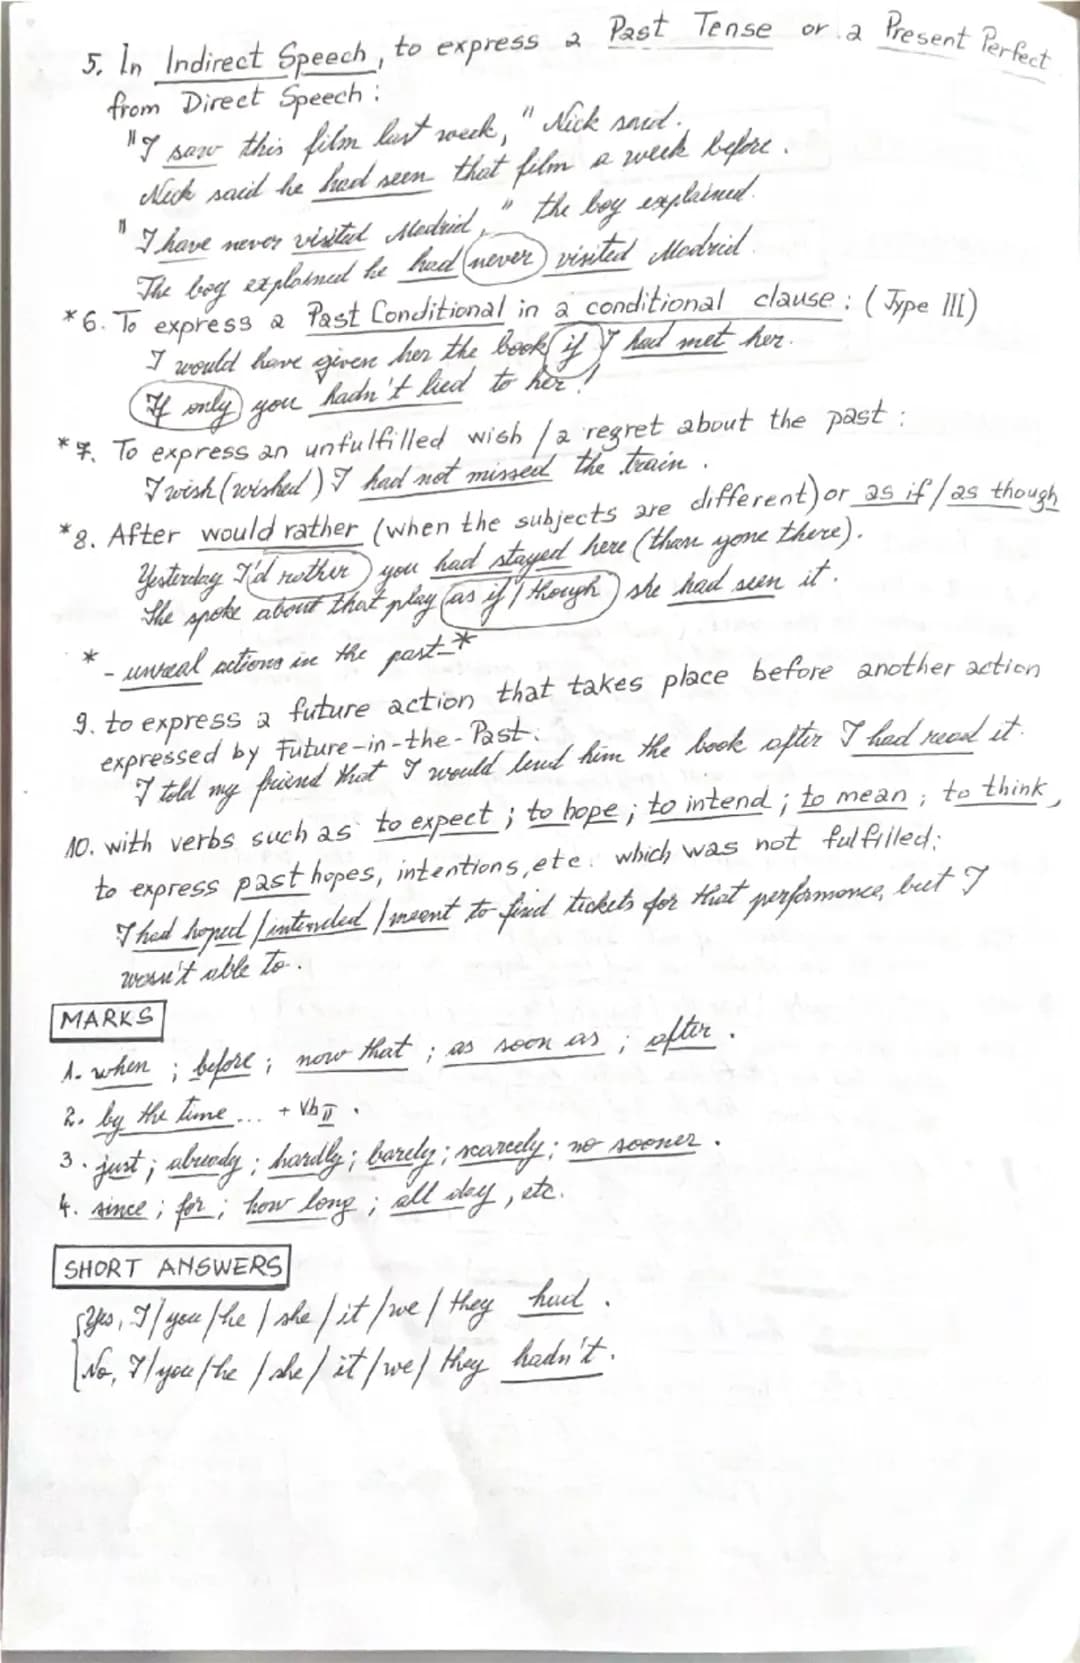 5. In Indirect Speech, to express a Past Tense or a Present Perfect
from Direct Speech:
"I saw this film last week," Nick said.
Nick said he had seen that film a week before.
"I have never visited Madrid," the boy explained.
The boy explained he had never visited Madrid.
*6. To express a Past Conditional in a conditional clause: (Type III)
I would have given her the book if I had met her.
If only you hadn't lied to her!
*7. To express an unfulfilled wish / a regret about the past:
I wish (wished) I had not missed the train.
*8. After would rather (when the subjects are different) or as if / as though
Yesterday I'd rather you had stayed here (than gone there).
She spoke about that play as if / though she had seen it.
* - unreal actions in the past - *
9. to express a future action that takes place before another action
expressed by Future-in-the-Past:
I told my friend that I would lend him the book after I had read it.
10. with verbs such as to expect; to hope; to intend; to mean; to think,
to express past hopes, intentions, etc. which was not fulfilled:
I had hoped / intended / meant to find tickets for that performance, but I
wasn't able to.
MARKS
1. when; before; now that; as soon as; after.
2. by the time... + Vb II.
3. just; already; hardly; barely; scarcely; no sooner.
4. since; for; how long; all day, etc.
SHORT ANSWERS
Yes, I / you / he / she / it / we / they had.
No, I / you / he / she / it / we / they hadn't.